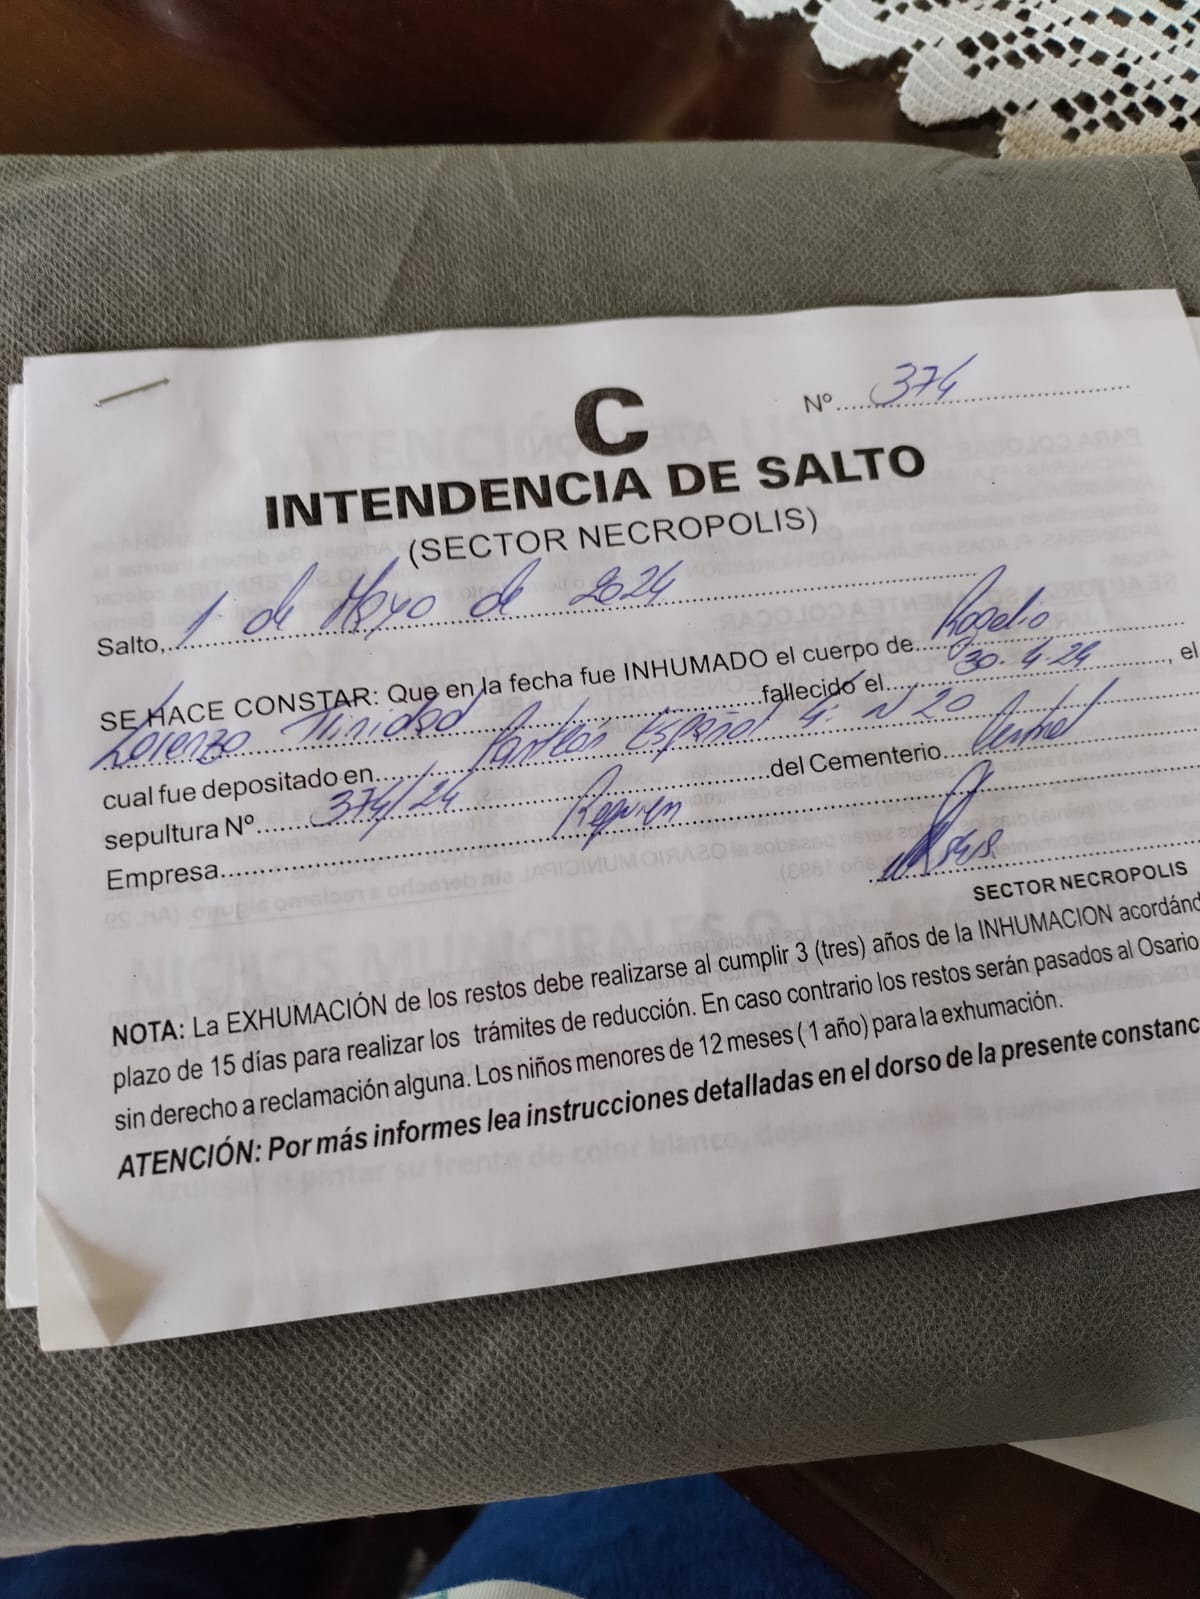 Nº 374
C
INTENDENCIA DE SALTO
(SECTOR NECROPOLIS)
Salto, 1 de Mayo de 2024
SE HACE CONSTAR: Que en la fecha fue INHUMADO el cuerpo de Rogelio
Lorenzo Trinidad fallecido el 30.4.24, el
cual fue depositado en Panteón Español 4: N 20
sepultura Nº 374/24 del Cementerio Central
Empresa Requien
SECTOR NECROPOLIS
NOTA: La EXHUMACIÓN de los restos debe realizarse al cumplir 3 (tres) años de la INHUMACION acordánd
plazo de 15 días para realizar los trámites de reducción. En caso contrario los restos serán pasados al Osario
sin derecho a reclamación alguna. Los niños menores de 12 meses ( 1 año) para la exhumación.
ATENCIÓN: Por más informes lea instrucciones detalladas en el dorso de la presente constanc